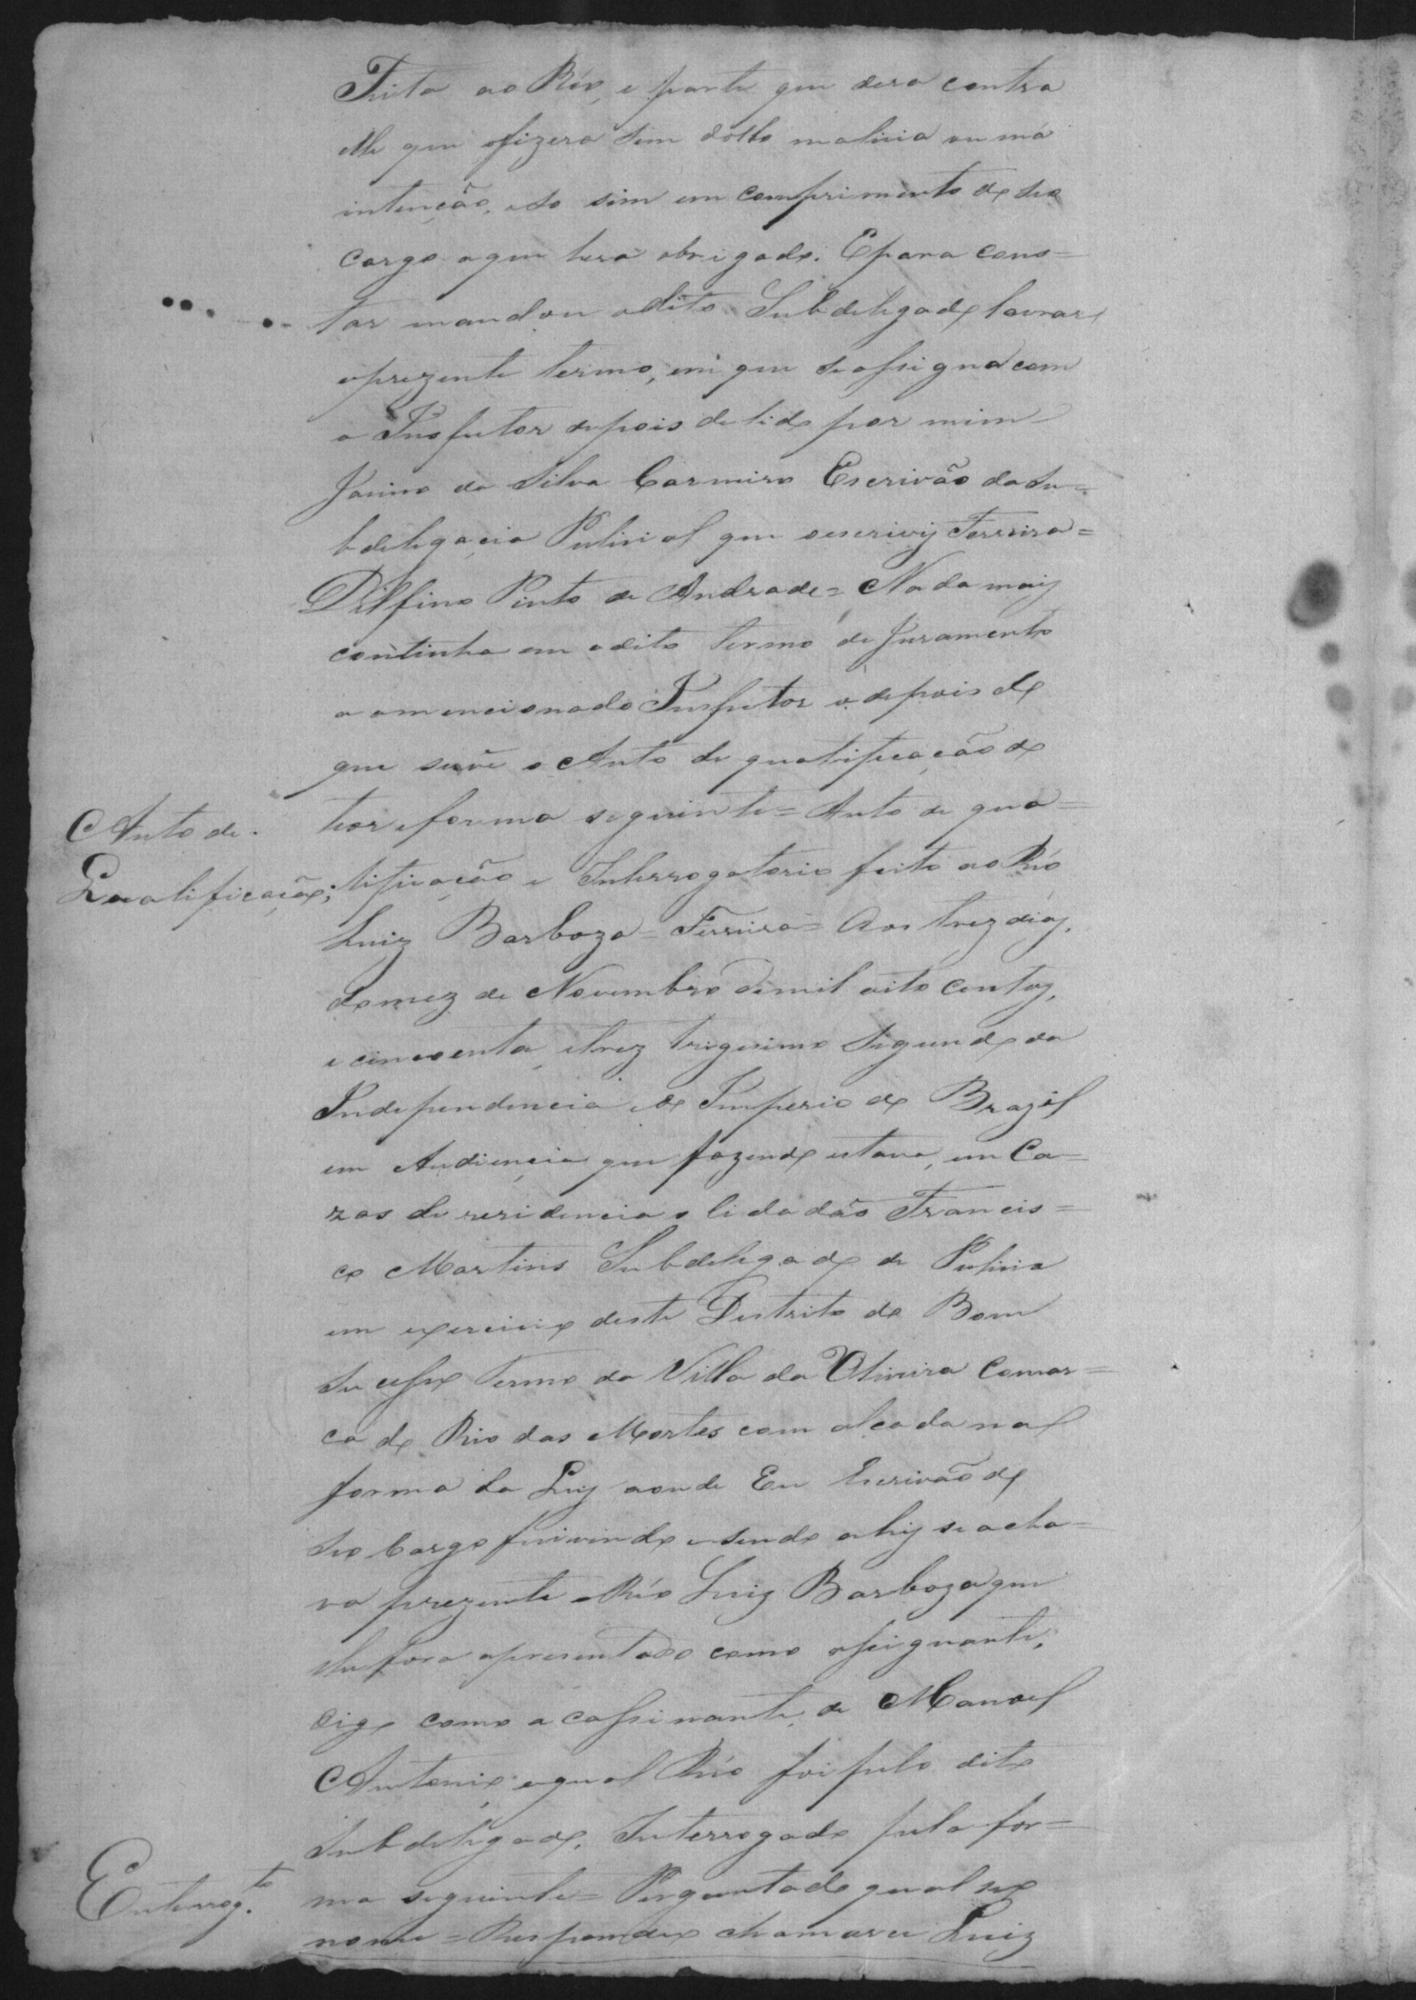 Feita ao Réo, e parte que dera contra
elle que ofizera sem dollo malicia ou má
intenção, eso sim em comprimento de seo
cargo aque hera obrigado. Epara cons=
tar mandou odito Subdelegado lavrar
oprezente termo, em que se assigna com
o Inspector depois de lido por mim
Janino da Silva Carmiro Escrivão da Su=
bdelegacia Pulicial que oescrivij Ferreira=
Delfino Pinto de Andrade= Nada maij
continha em odito termo de Juramento
a omencionado Inspector e depois de
que se vê o Auto de qualificação do
theor eforma seguinte= Auto de qua=
Auto de
Qualificação;
lificação e Interrogatorio feito ao Réo
Luiz Barboza= Ferreira= Aos trez diaz,
do mez de Novembro de mil oito centoz,
e cincoenta, etrez trigesimo Segundo da
Independencia edo Imperio do Brazil
em Audiencia que fazendo estava, em Ca=
zas de rezidencia o Cidadão Francis=
co Martins Subdelegado de Pulicia
em exercicio deste Destrito do Bom
Sucesso Termo da Villa da Oliveira Comar=
ca do Rio das Mortes com alçada na
forma da Ley aonde Eu Escrivão do
seo Cargo fui vindo esendo ahij se acha=
va prezente o Réo Luiz Barboza que
lhe fora apresentado como assignante,
digo como acassinante, de Manoel
Antonio, oqual Réo foi pelo dito
Subdelegado, Interrogado pela for=
Enterrog.to
ma seguinte= Perguntado qual seo
nome = Respondeo chamarce Luiz